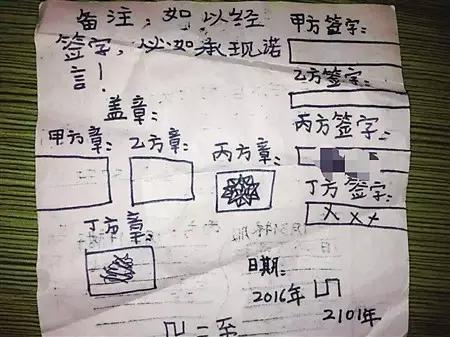 备注;如以经
签字,以如承现诺
言!
甲方签字:
乙方签字:
丙方签字:
丁方签字:
XXX
盖章:
甲方章:
乙方章:
丙方章:
丁方章:
日期:
2016年
2101年
二至